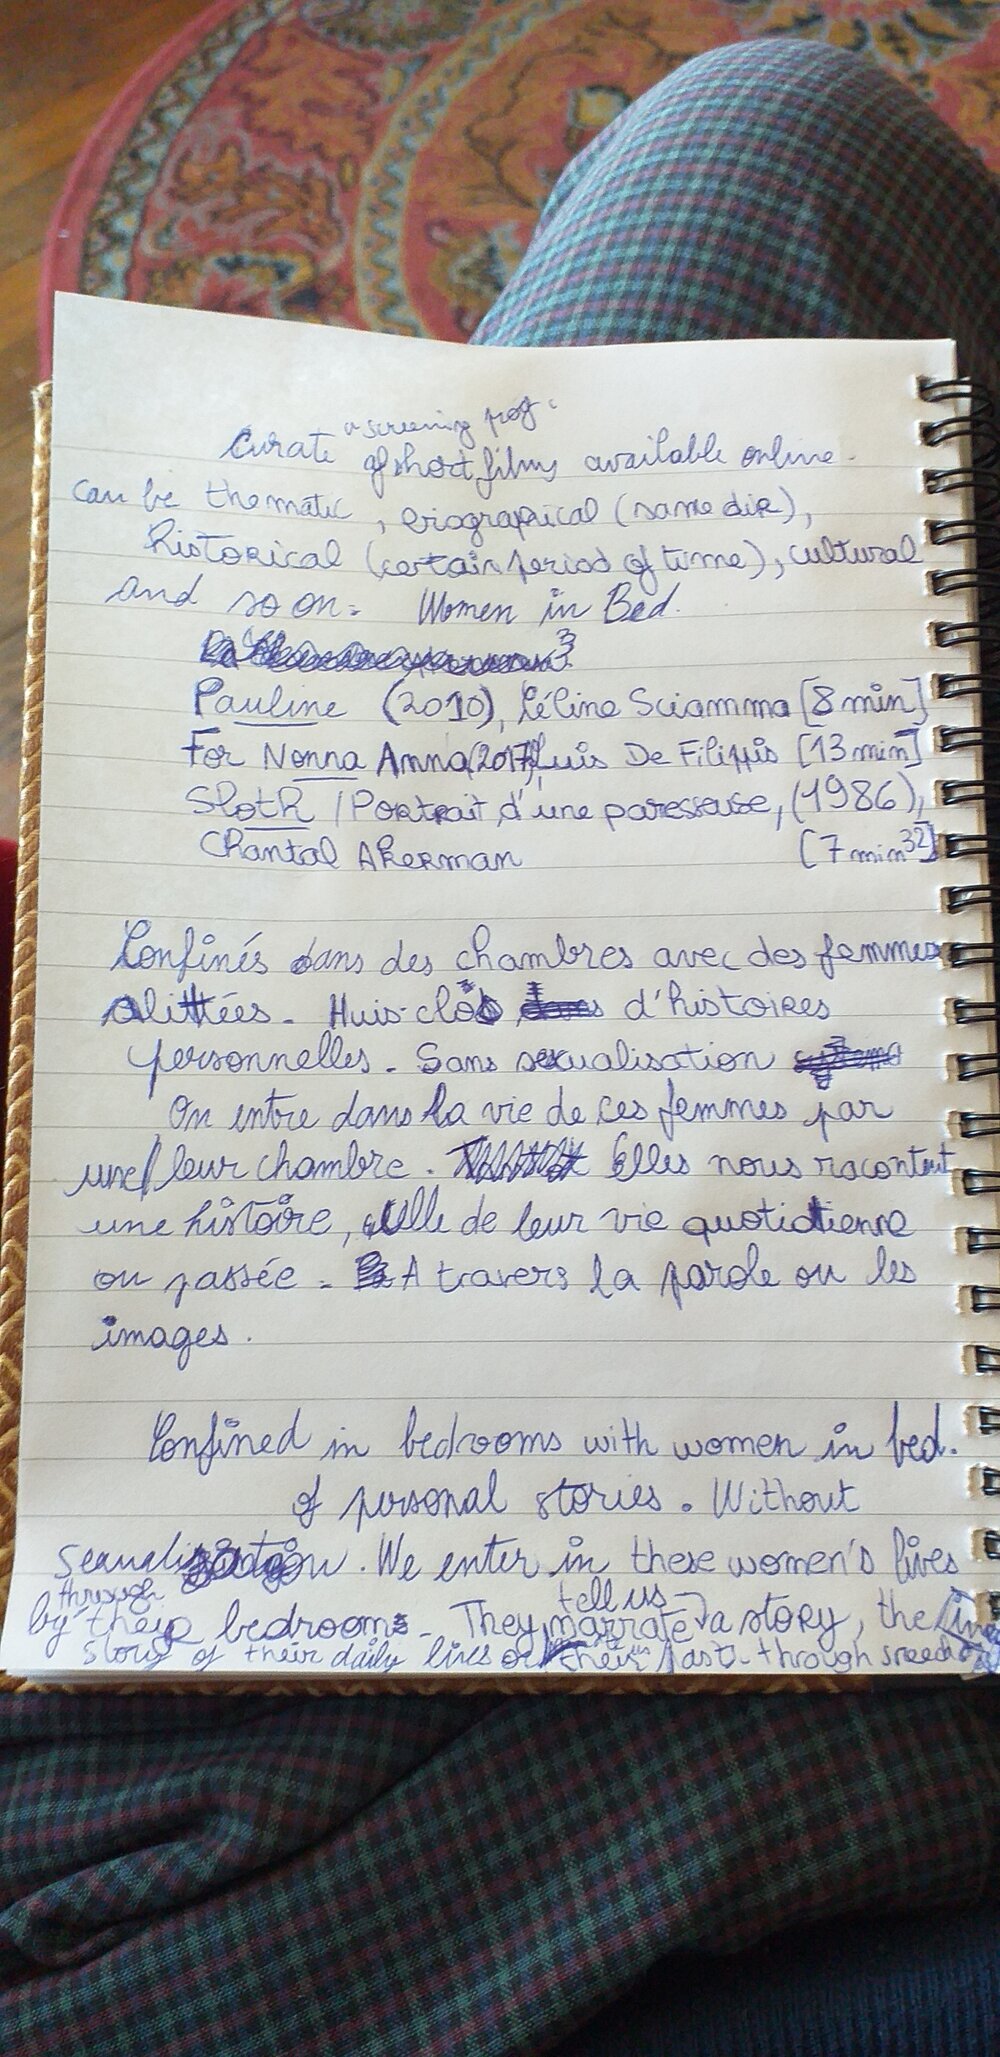 a screening prog.
Curate of short films available online.
can be thematic, biographical (same dir),
historical (certain period of time), cultural
and so on. Women in Bed.
Pauline (2010), Céline Sciamma [8 min]
For Nonna Anna (2017), Luis De Filippis [13 min]
Sloth / Portrait d'une paresseuse, (1986),
Chantal Akerman [7 min 32]
Confinés dans des chambres avec des femmes
alittées. Huis-clos d'histoires
personnelles. Sans sexualisation
On entre dans la vie de ces femmes par
une/leur chambre. Elles nous racontent
une histoire, celle de leur vie quotidienne
ou passée. A travers la parole ou les
images.
Confined in bedrooms with women in bed.
of personal stories. Without
sexualization. We enter in these women's lives
through
by their bedrooms. They narrate a story, the
tell us
story of their daily lives or their past. through speech